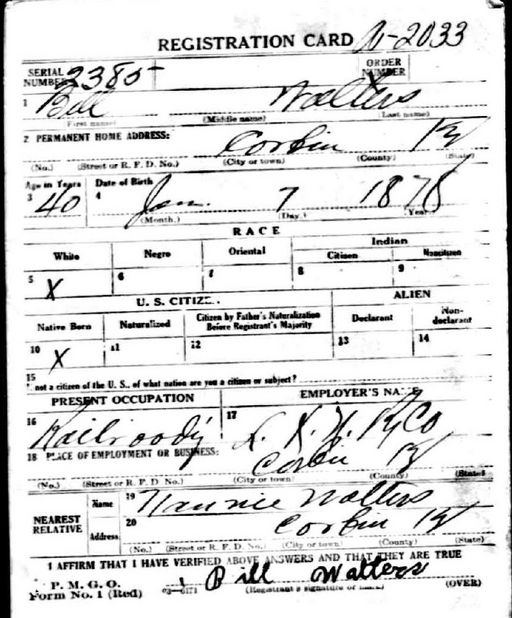 REGISTRATION CARD N-2033
SERIAL NUMBER 2385 ORDER NUMBER
1 Bill Walters
First name) (Middle name) Last name)
2 PERMANENT HOME ADDRESS: Corbin Ky
(No.) (Street or R. F. D. No.) (City or town) (County) (State)
Age in Years Date of Birth
3 40 4 Jan. 7 1878
(Month.) (Day.) Year.
RACE
White Negro Oriental Indian
Citizen Noncitizen
5 X 6 7 8 9
U. S. CITIZ ALIEN
Native Born Naturalized Citizen by Father's Naturalization Before Registrant's Majority Declarant Non-declarant
10 X 11 12 13 14
15
not a citizen of the U. S., of what nation are you a citizen or subject?
PRESENT OCCUPATION EMPLOYER'S NA E
16 Railroading 17 L. & N. Ry Co
18 PLACE OF EMPLOYMENT OR BUSINESS: Corbin Ky
(No.) (Street or R. F. D. No.) (City or town) (County) (State)
NEAREST RELATIVE Name 19 Nannie Walters
Address 20 Corbin Ky
(No.) (Street or R. F. D. No.) (City or town) (County) (State)
I AFFIRM THAT I HAVE VERIFIED ABOVE ANSWERS AND THAT THEY ARE TRUE
P. M. G. O. Bill Walters
Form No. 1 (Red) 03-6171 (Registrant's signature or (OVER)